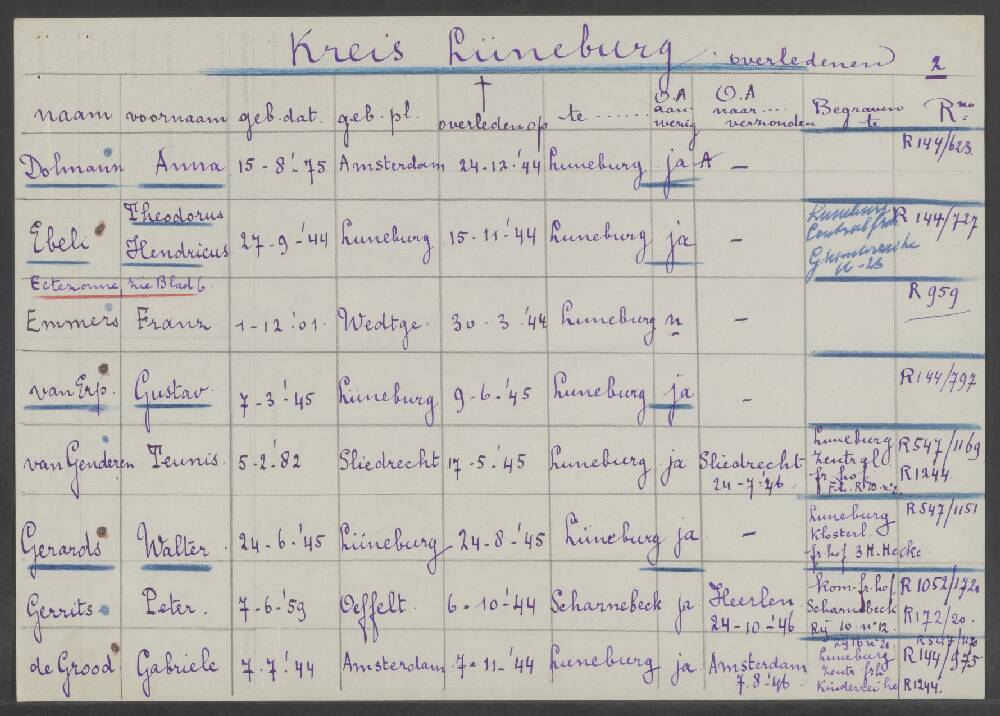 Kreis Lüneburg overledenen 2
naam voornaam geb. dat. geb. pl. † overleden op te ...... O.A aanwezig O.A naar .... verzonden Begraven te R. no
Dolmann Anna 15-8-'75 Amsterdam 24-12-'44 Luneburg ja A – R 144/623.
Ebeli Theodorus Hendricus 27-9-'44 Luneburg 15-11-'44 Luneburg ja – Luneburg Centralfr. 16-26 R 144/727
Ectezonne zie Blad 6.
Emmers Franz 1-12-'01. Wedtge. 30-3-'44 Luneburg n – R 959
van Erp. Gustav. 7-3-'45 Lüneburg 9-6-'45 Luneburg ja – R 144/797
van Genderen Teunis. 5-2-'82 Sliedrecht 17-5-'45 Luneburg ja Sliedrecht 24-7-'46 Luneburg Zentral fr. hof R547/1169 R1244.
Gerards Walter 24-6-'45 Lüneburg 24-8-'45 Lüneburg ja – Luneburg Klosterl. fr. hof 3 H. Hecke R547/1151
Gerrits Peter. 7-6-'59 Oeffelt. 6-10-'44 Scharnebeck ja Heerlen 24-10-'46 Kom. fr. hof Scharnebeck Rij 10 no 12 R1052/1720 R172/20.
de Grood Gabriele 7.7.'44 Amsterdam 7-11-'44 Luneburg ja Amsterdam 7.8-46 Luneburg Zentr. frh. Kinderreihe R 144/975 R1244.